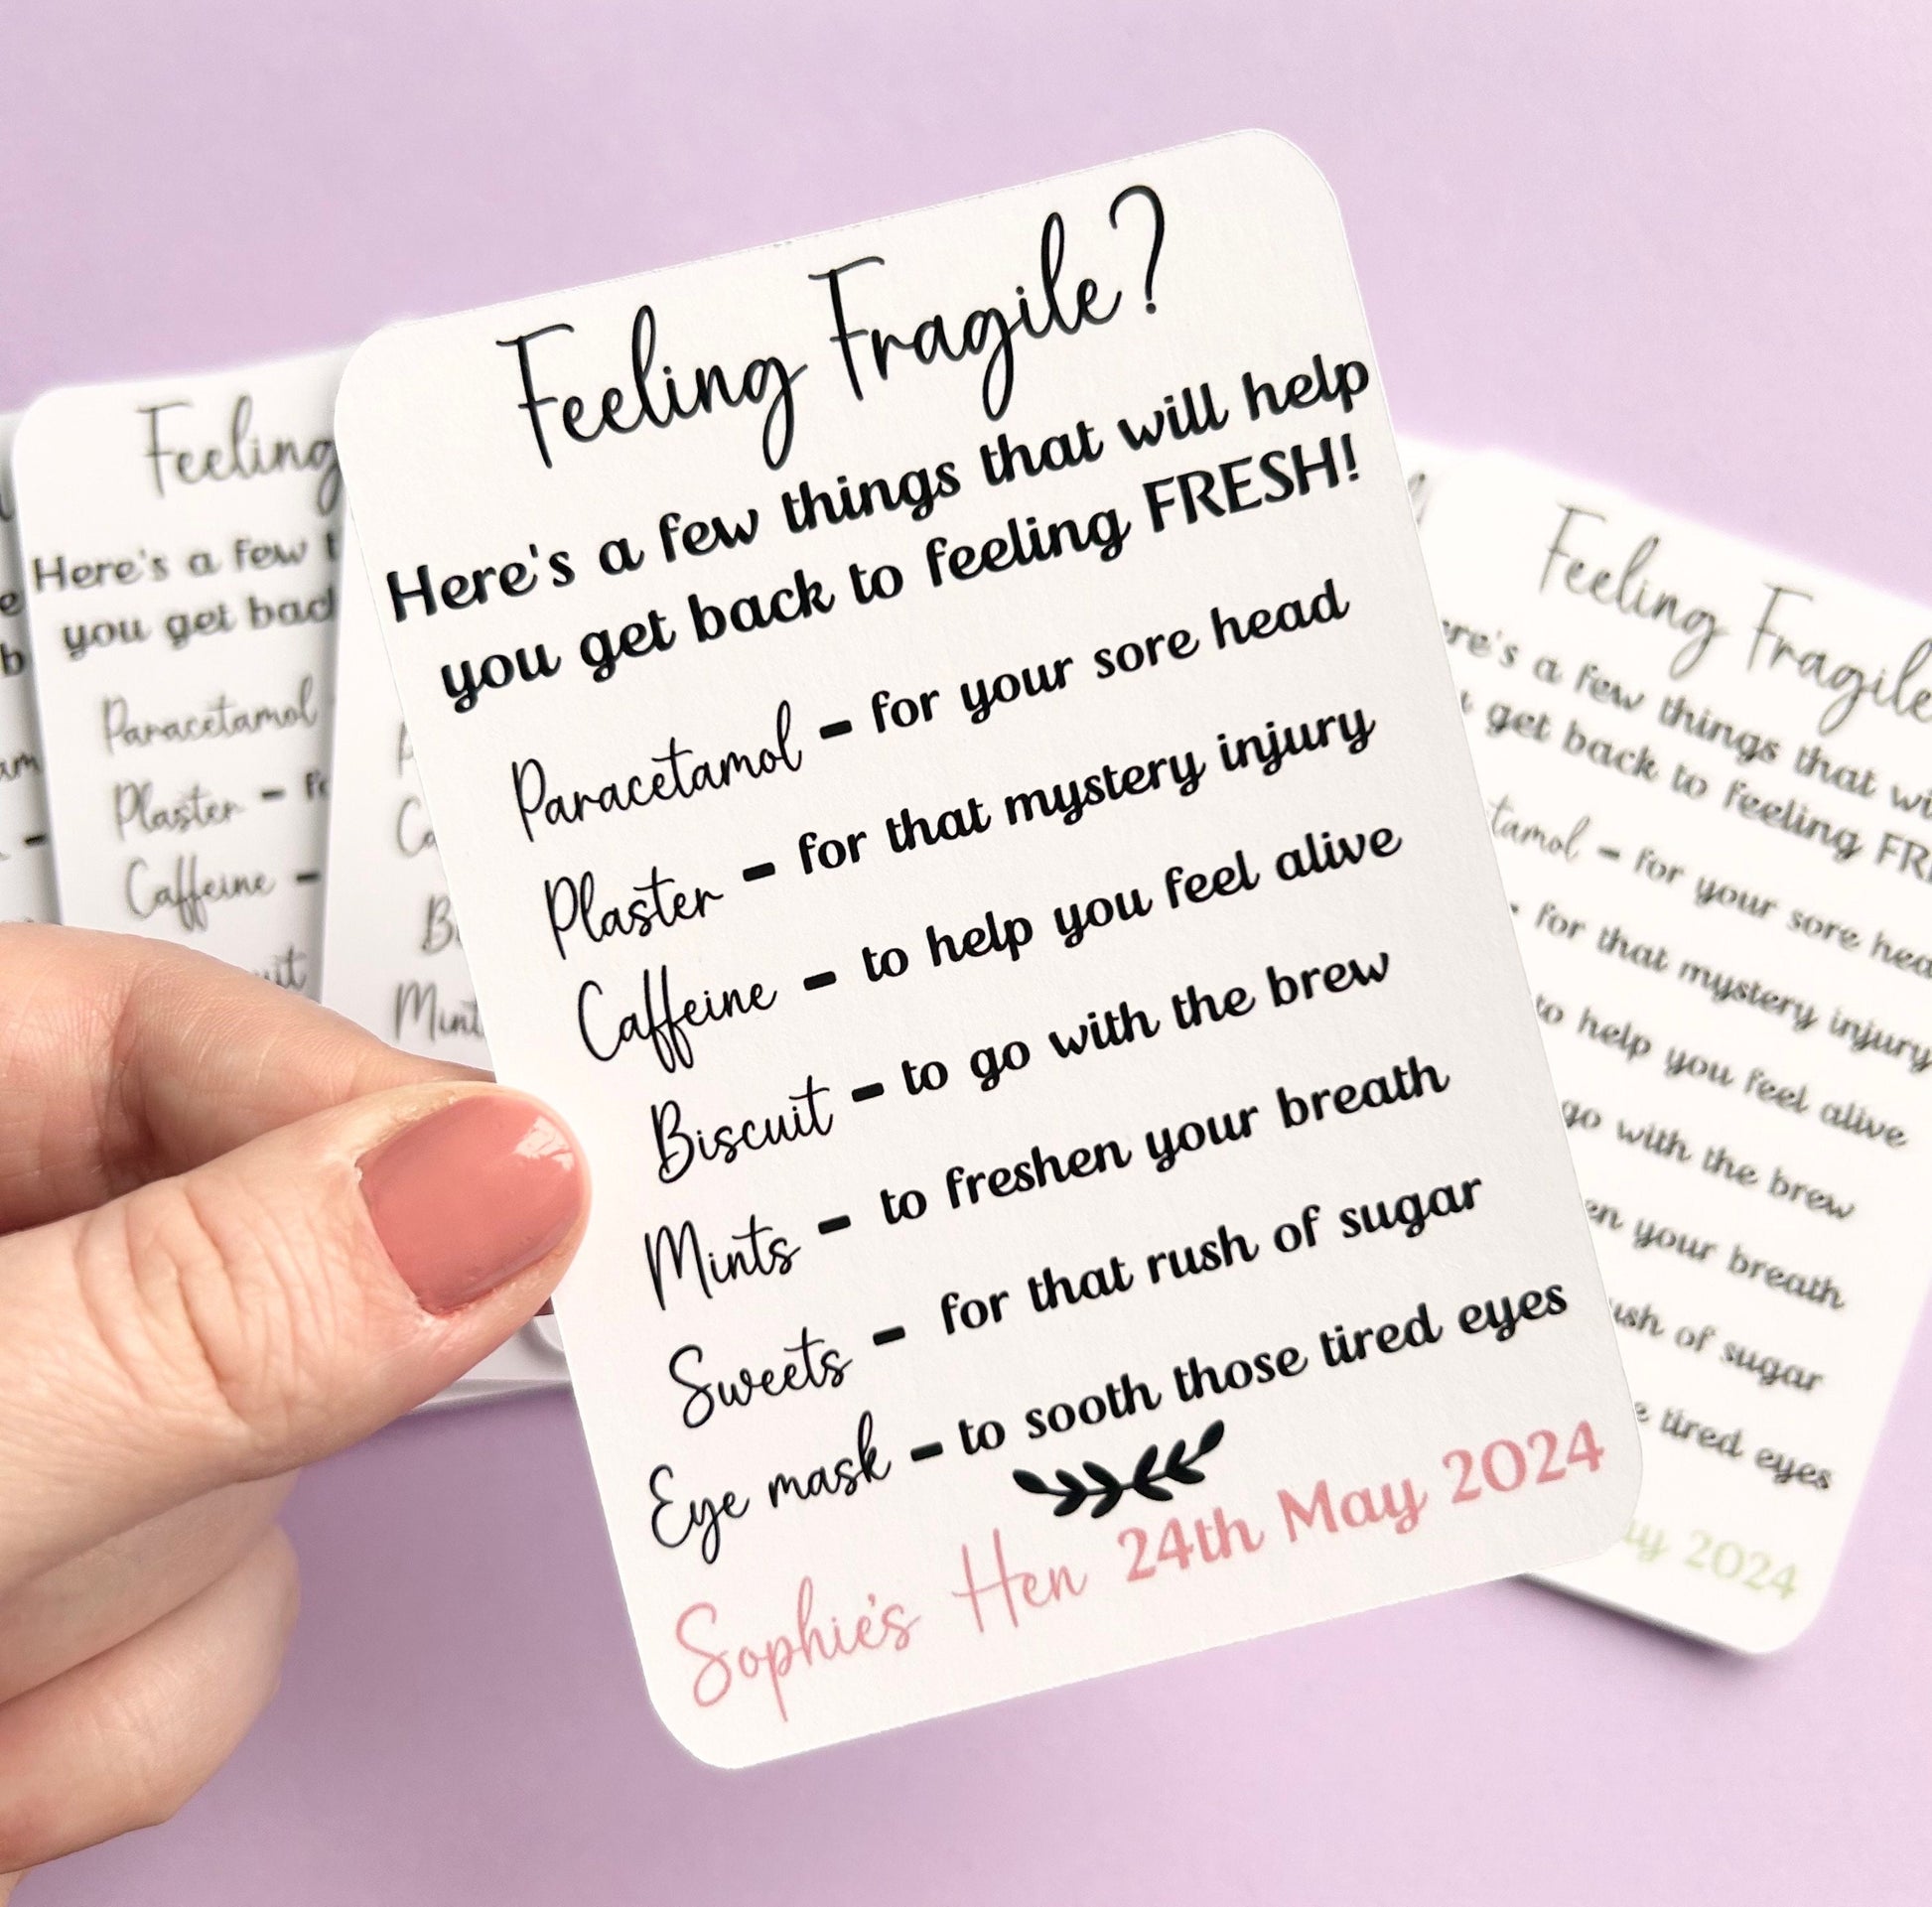 Feeling Fragile?
Here's a few things that will help
you get back to feeling FRESH!
Paracetamol - for your sore head
Plaster - for that mystery injury
Caffeine - to help you feel alive
Biscuit - to go with the brew
Mints - to freshen your breath
Sweets - for that rush of sugar
Eye mask - to sooth those tired eyes
Sophie's Hen 24th May 2024
Feeling
Here's a few
you get
Paracetamol
Plaster -
Caffeine -
Feeling Fragile
a few things that
get back to feeling
- for your sore
for that mystery injury
to help you feel alive
go with the brew
your breath
of sugar
tired eyes
2024